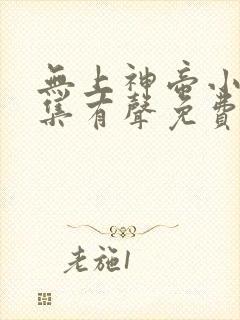 無上神帝小
集有聲免費
老施1